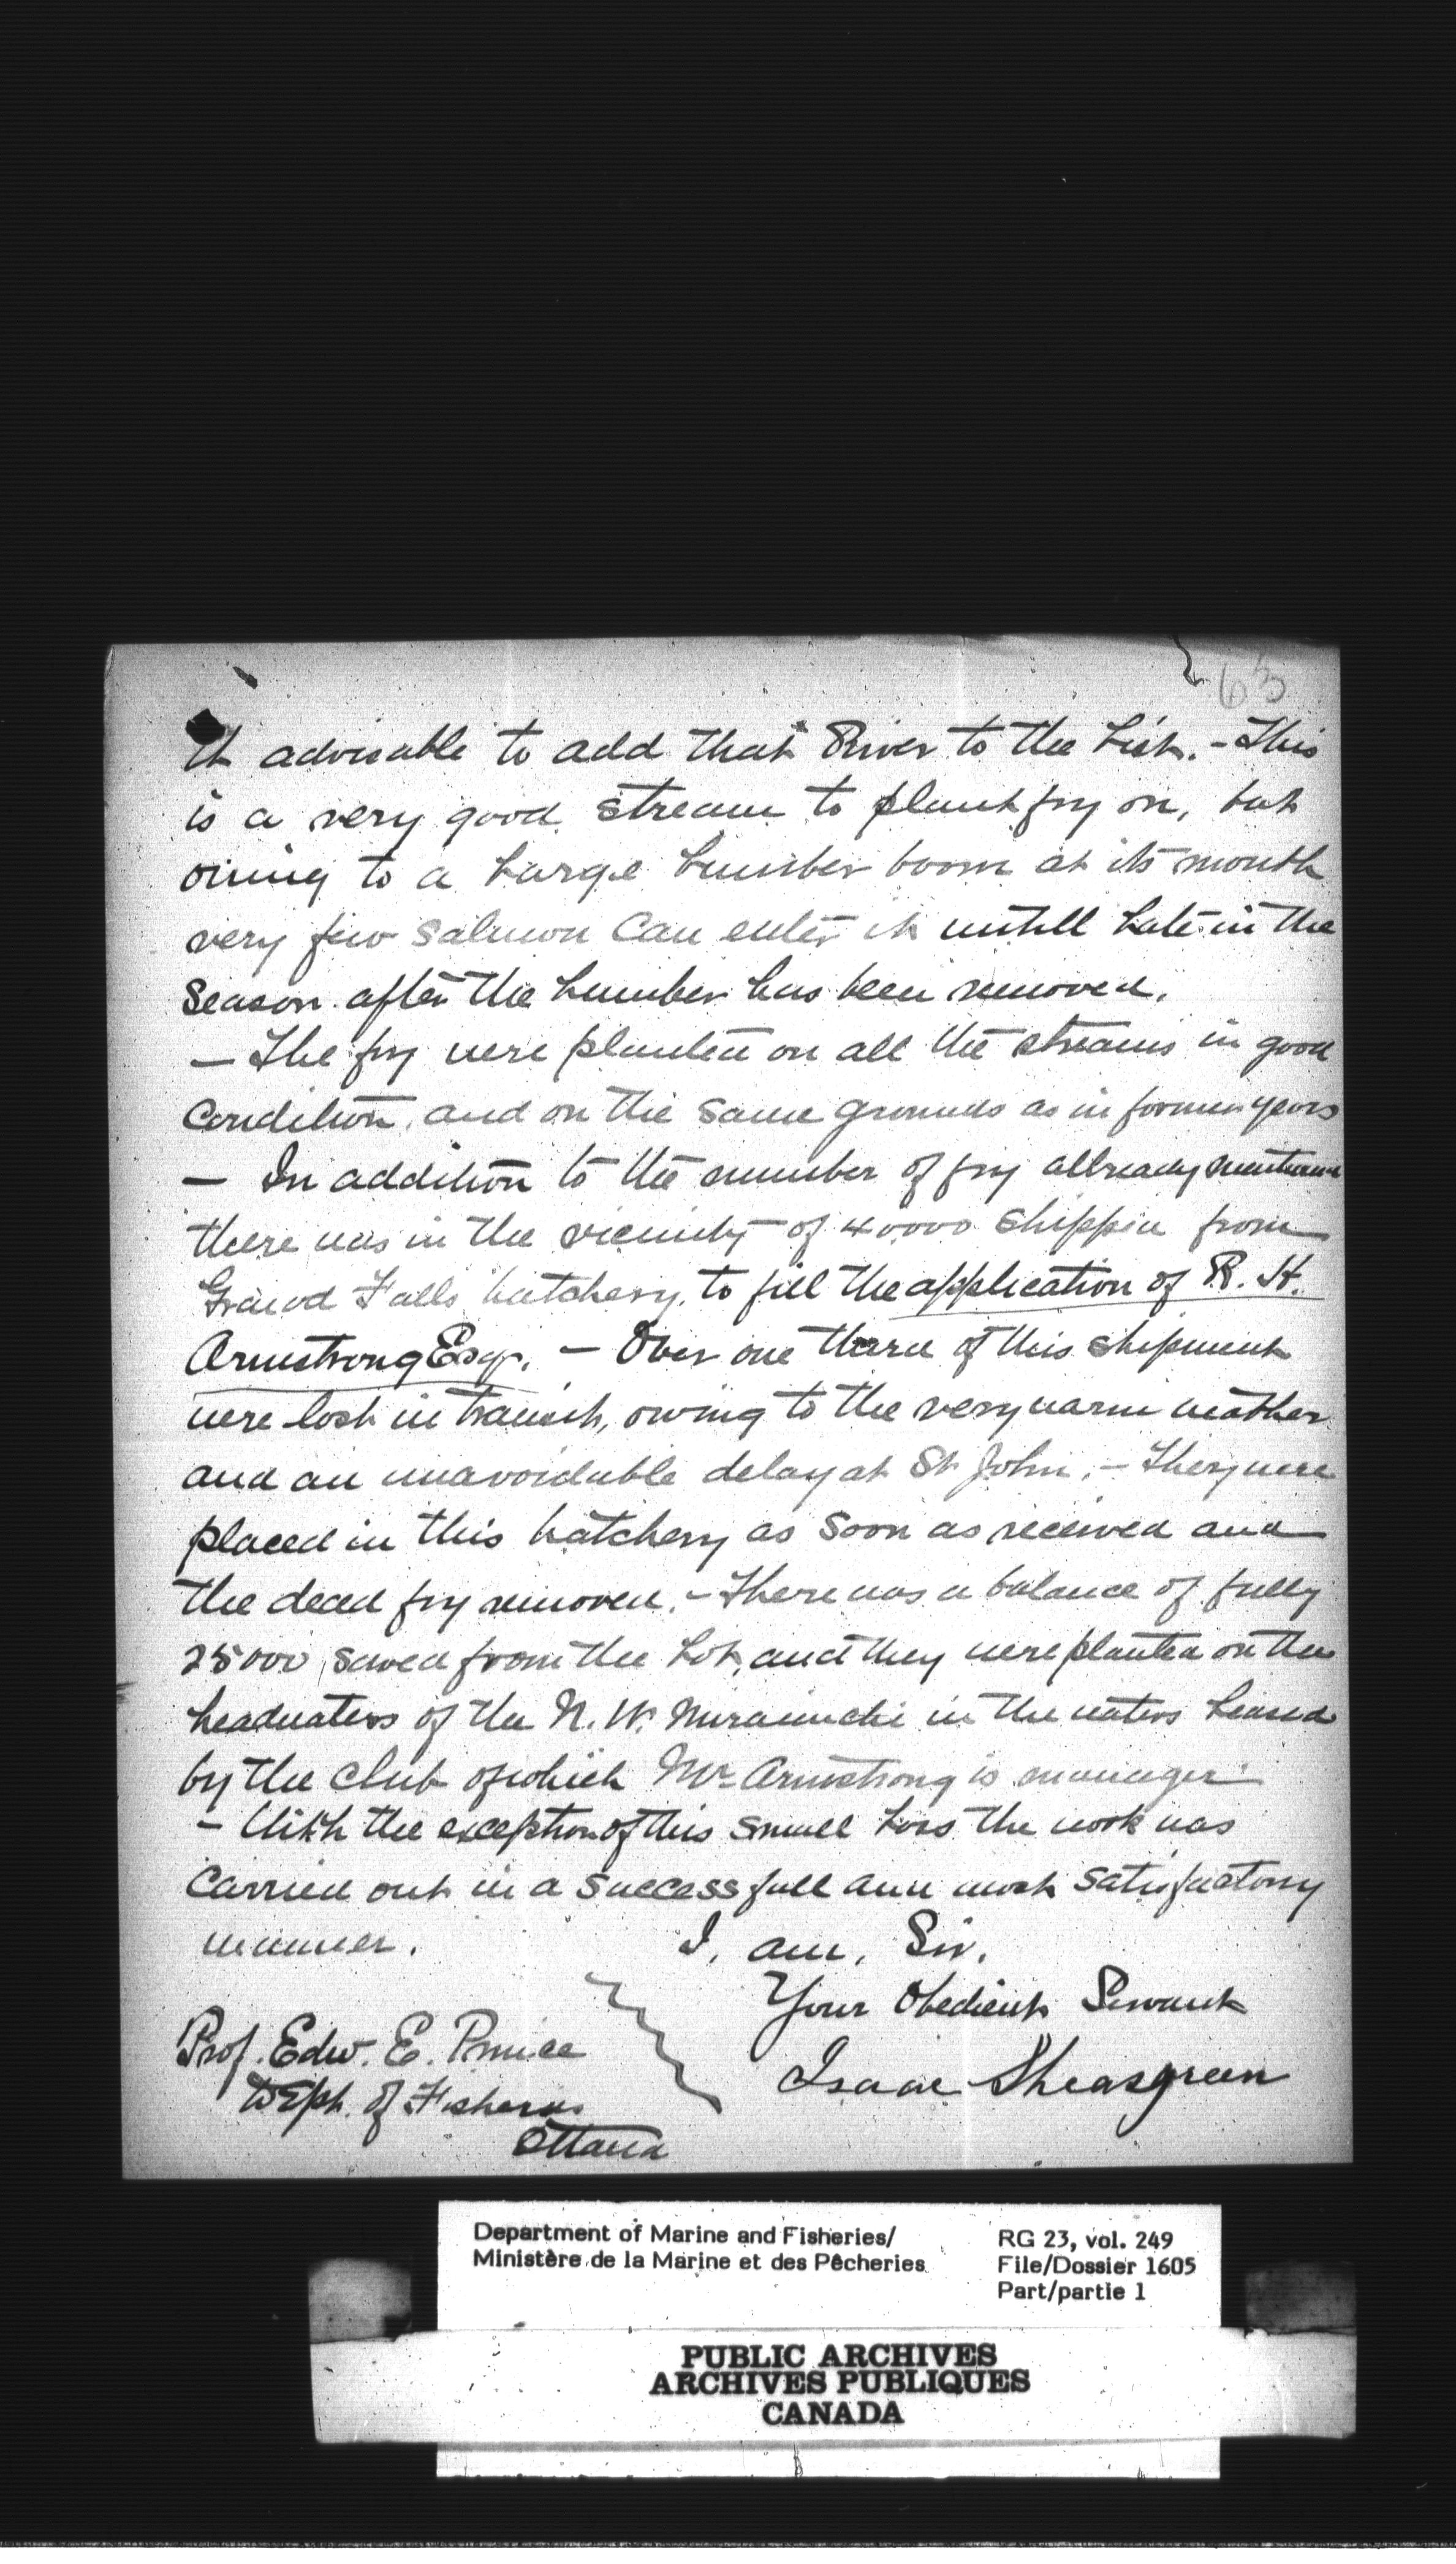 63
it advisable to add that River to the List. - This
is a very good stream to plant fry on, but
owing to a Large Lumber boom at its mouth
very few Salmon Can enter it untill Late in the
Season after the Lumber has been removed.
— The fry were planted on all the streams in good
Condition, and on the same grounds as in former years
— In addition to the number of fry allready mentioned
there was in the vicinity of 40000 shipped from
Grand Falls hatchery, to fill the application of R. H.
Armstrong Esqr. — Over one third of this shipment
were lost in transit, owing to the very warm weather
and an unavoidable delay at St John, - They were
placed in this hatchery as soon as received and
the dead fry removed. - There was a balance of fully
25000 saved from the Lot, and they were planted on the
headwaters of the N. W. Miramichi in the waters Leased
by the Club of which Mr Armstrong is manager
- With the exception of this small Loss the work was
Carried out in a Successfull and most Satisfactory
manner. I, am, Sir,
Your Obedient Servant
Isaac Sheasgreen
Prof. Edw. E. Prince
Dept. of Fisheries
Ottawa
Department of Marine and Fisheries/
Ministère de la Marine et des Pêcheries
RG 23, vol. 249
File/Dossier 1605
Part/partie 1
PUBLIC ARCHIVES
ARCHIVES PUBLIQUES
CANADA